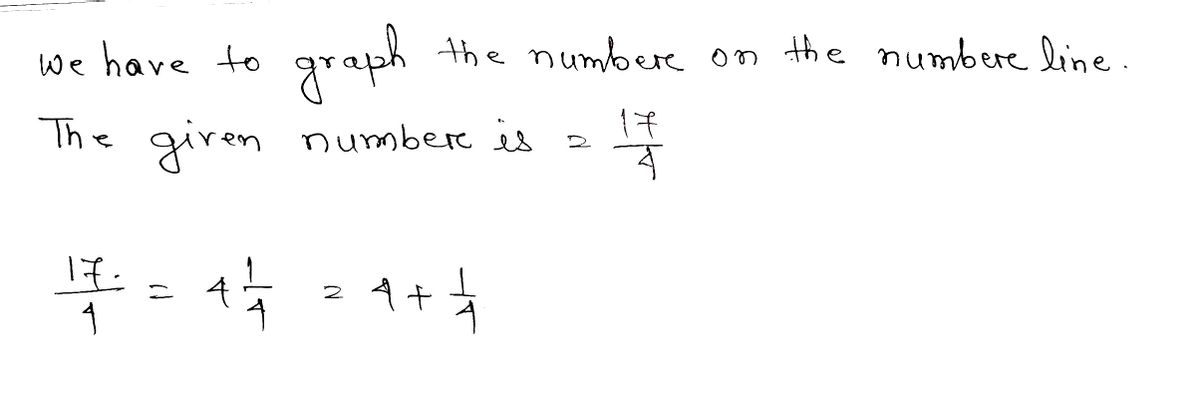 We have to graph the number on the number line.
The given number is = 17/4
17/4 = 4 1/4 = 4 + 1/4